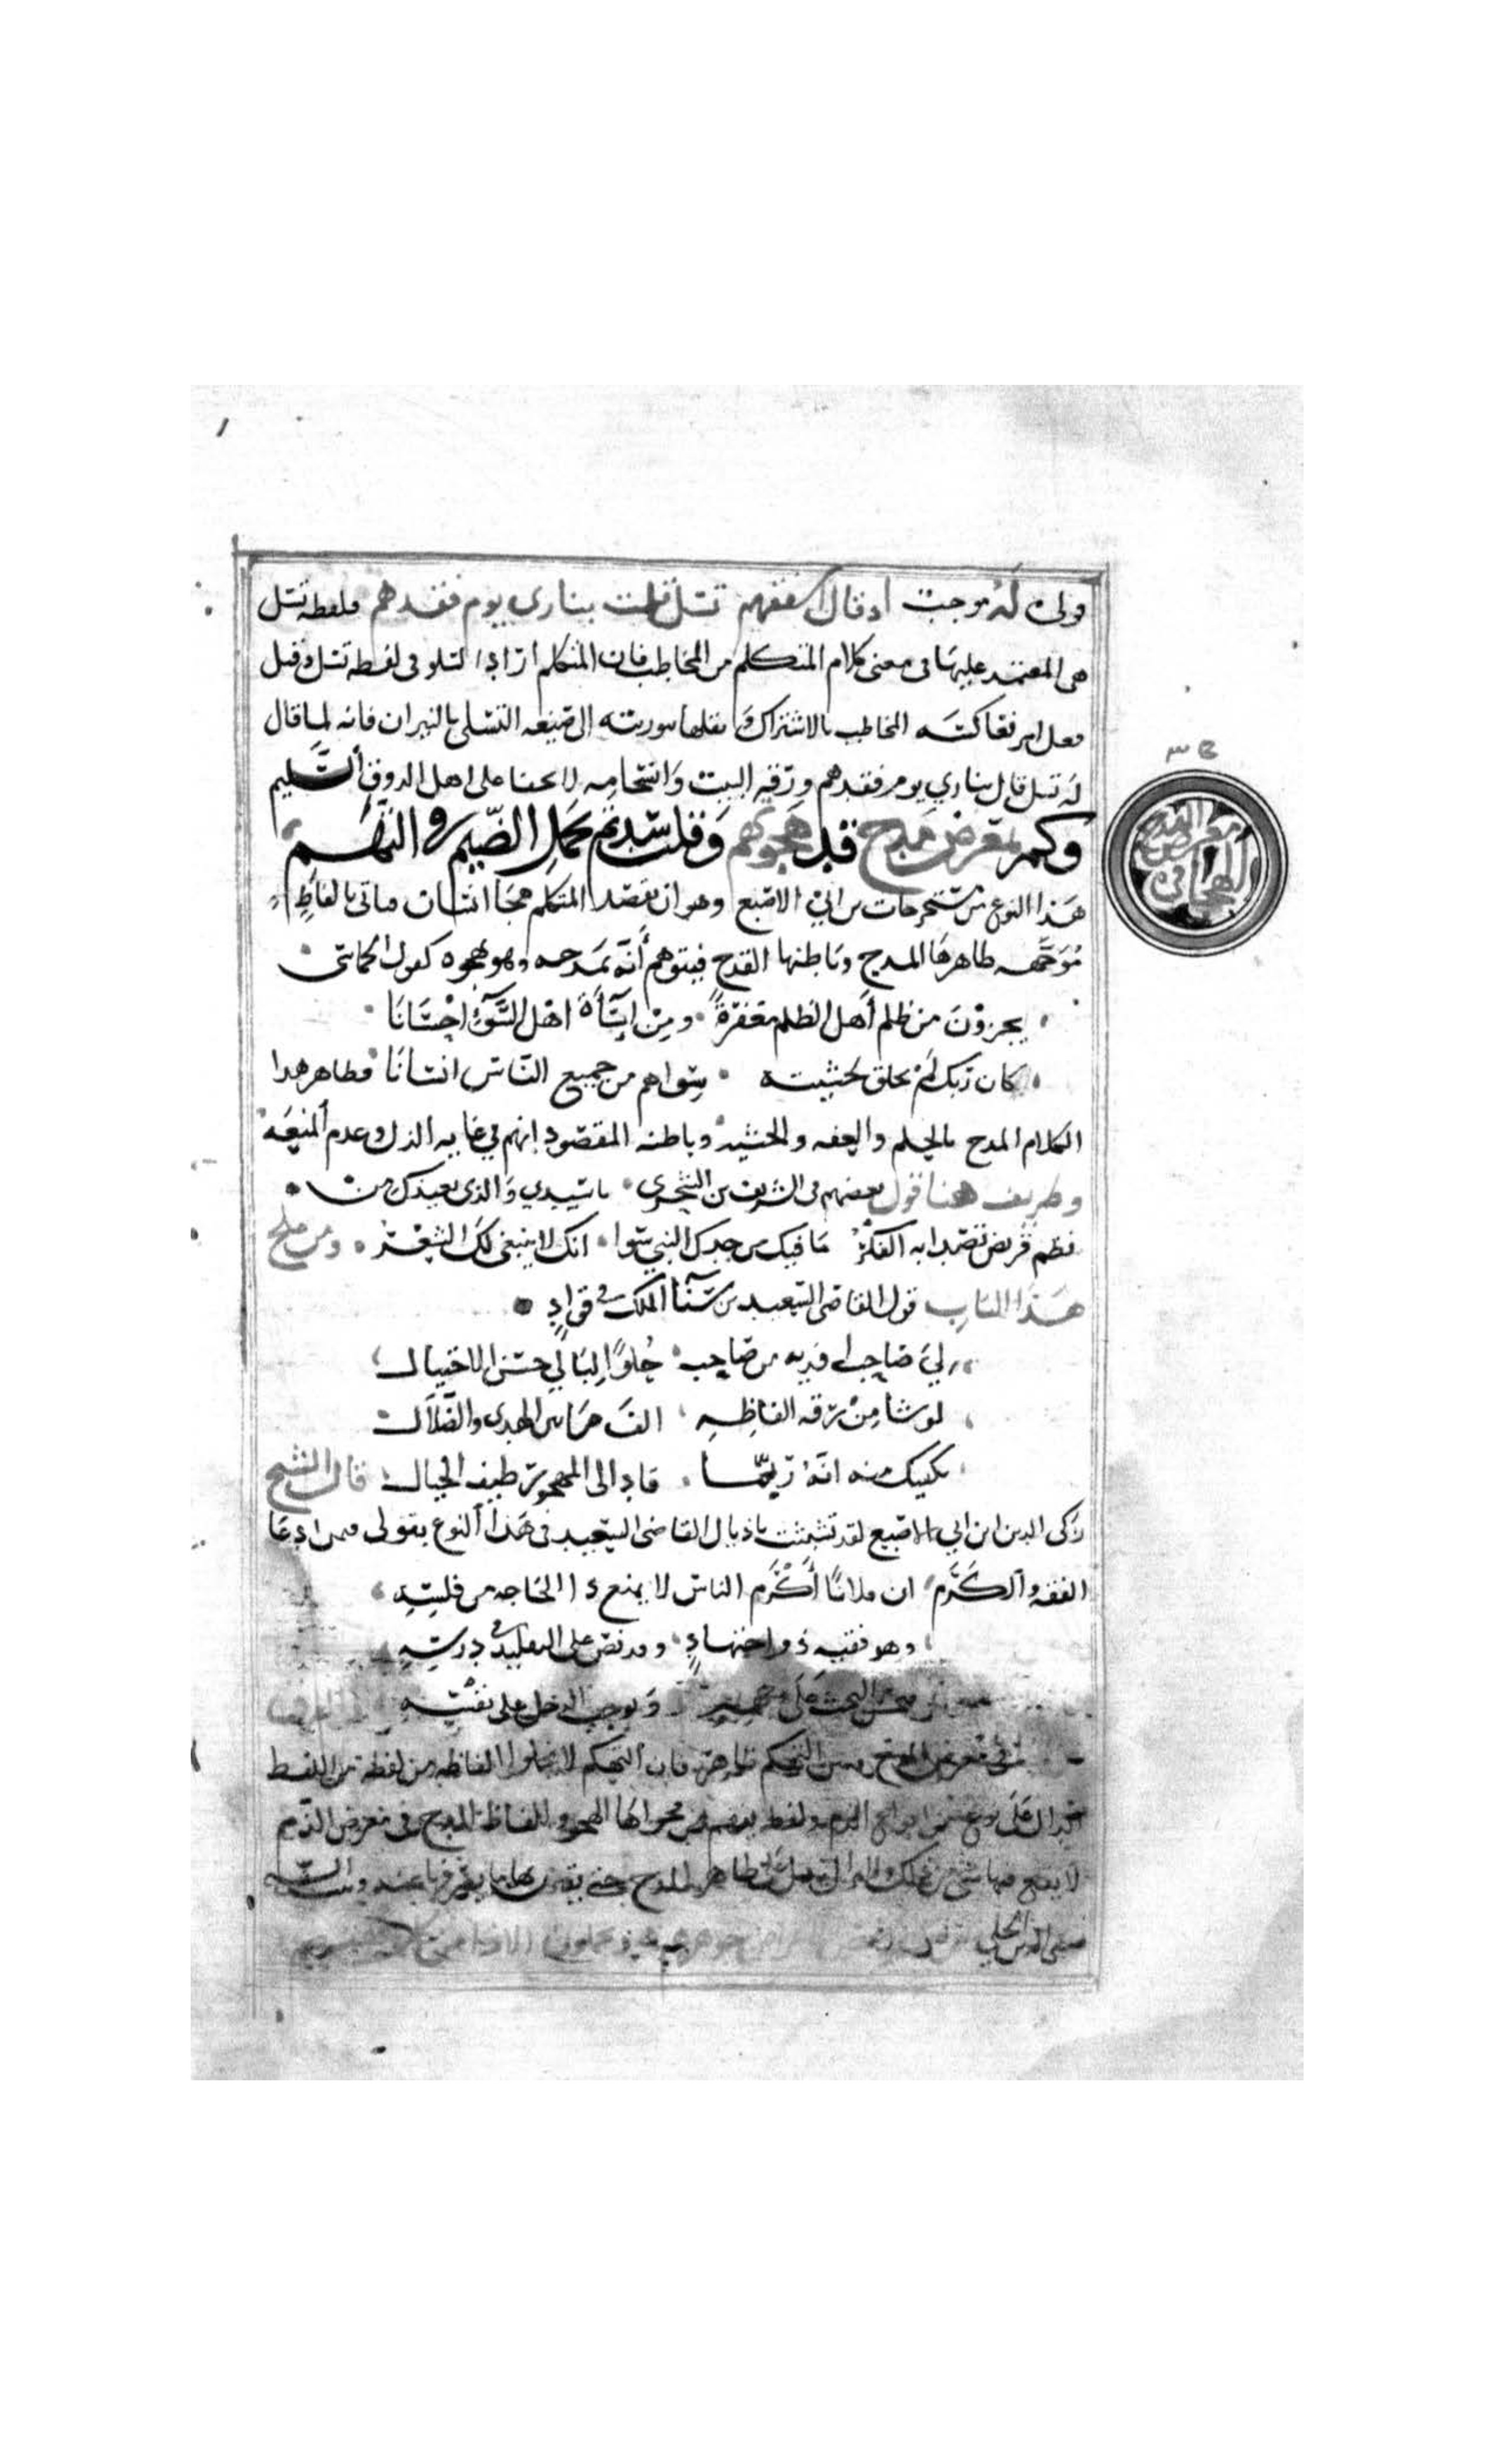 قولى له موجبت اذ قال اشفقهم تسل قلت بنارى يوم فقدهم فلفظه تسل
هى المعتمد عليها فى معنى كلام المتكلم من المخاطب فان المتكلم اراد التسلو فى لفظه تسل وقيل
فعل امر فعاكسه المخاطب بالاشتراك و نقلها بوريته الى صيغه التسلى بالنيران فانه لما قال
له تسل قال بناري يوم فقدهم ورقه البيت وانتحامه لا يخفا على اهل الذوق السليم
وكم بمعرض مدح قد هجوتهم وقلت سدتم بحمل الضيم والتهم
الهجا فى معرض المدح
هذا النوع من مستخرجات بن ابى الاصبع وهو ان يقصد المتكلم هجا انسان فياتى بالفاظ
موجهه ظاهرها المدح وباطنها القدح فيتوهم أنه يمدحه وهو يهجوه كقول الحماسى
يجزون من ظلم أهل الظلم مغفرة ومن اساة اهل السوء احسانا
كان ربك لم يخلق لخشيته سواهم من جميع الناس انسانا فظاهر هذا
الكلام المدح بالحلم والعفه والخشيه وباطنه المقصود انهم في غايه الذل وعدم المنعه
وظريف هنا قول بعضهم فى الشريف بن الشجرى ياسيدي والذى يعيذك من
نظم قريض تصدا به الفكر ما فيك من جدك النبي سوا انك لا ينبغى لك الشعر ومن ملح
هذا الباب قول القاضى السعيد بن سنا الملك في قواد
لي صاحب افديه من صاحب حلو التالي حسن الاحتيال
لو شا من رقه الفاظه الف ما بين الهدى والضلال
يكفيك منه انه ربما قاد الى المهجور طيف الخيال قال الشيخ
زكى الدين ابن ابي الاصبع لقد تشبثت باذيال القاضى السعيد فى هذا النوع بقولى فيمن ادعا
الفقه والكرم ان فلانا أكرم الناس لا يمنع ذا الحاجه من فلسه
وهو فقيه ذو اجتهاد وقد نص على التقليد في درسه
البحث على وجهه ويوجب الدخل على نفسه
فى معرض المدح وبين التهكم ظاهر فان التهكم لا تخلوا الفاظه من لفظه من اللفظ
الدال على نوع من انواع الذم ولفظه يفهم من فحواها الهجو والفاظ المدح فى معرض الذم
لا يقع فيها شى من ذلك ولا تزال تدل على ظاهر المدح حتى يقترن بها ما يصرفها عنه وبيت
صفى الدين الحلي